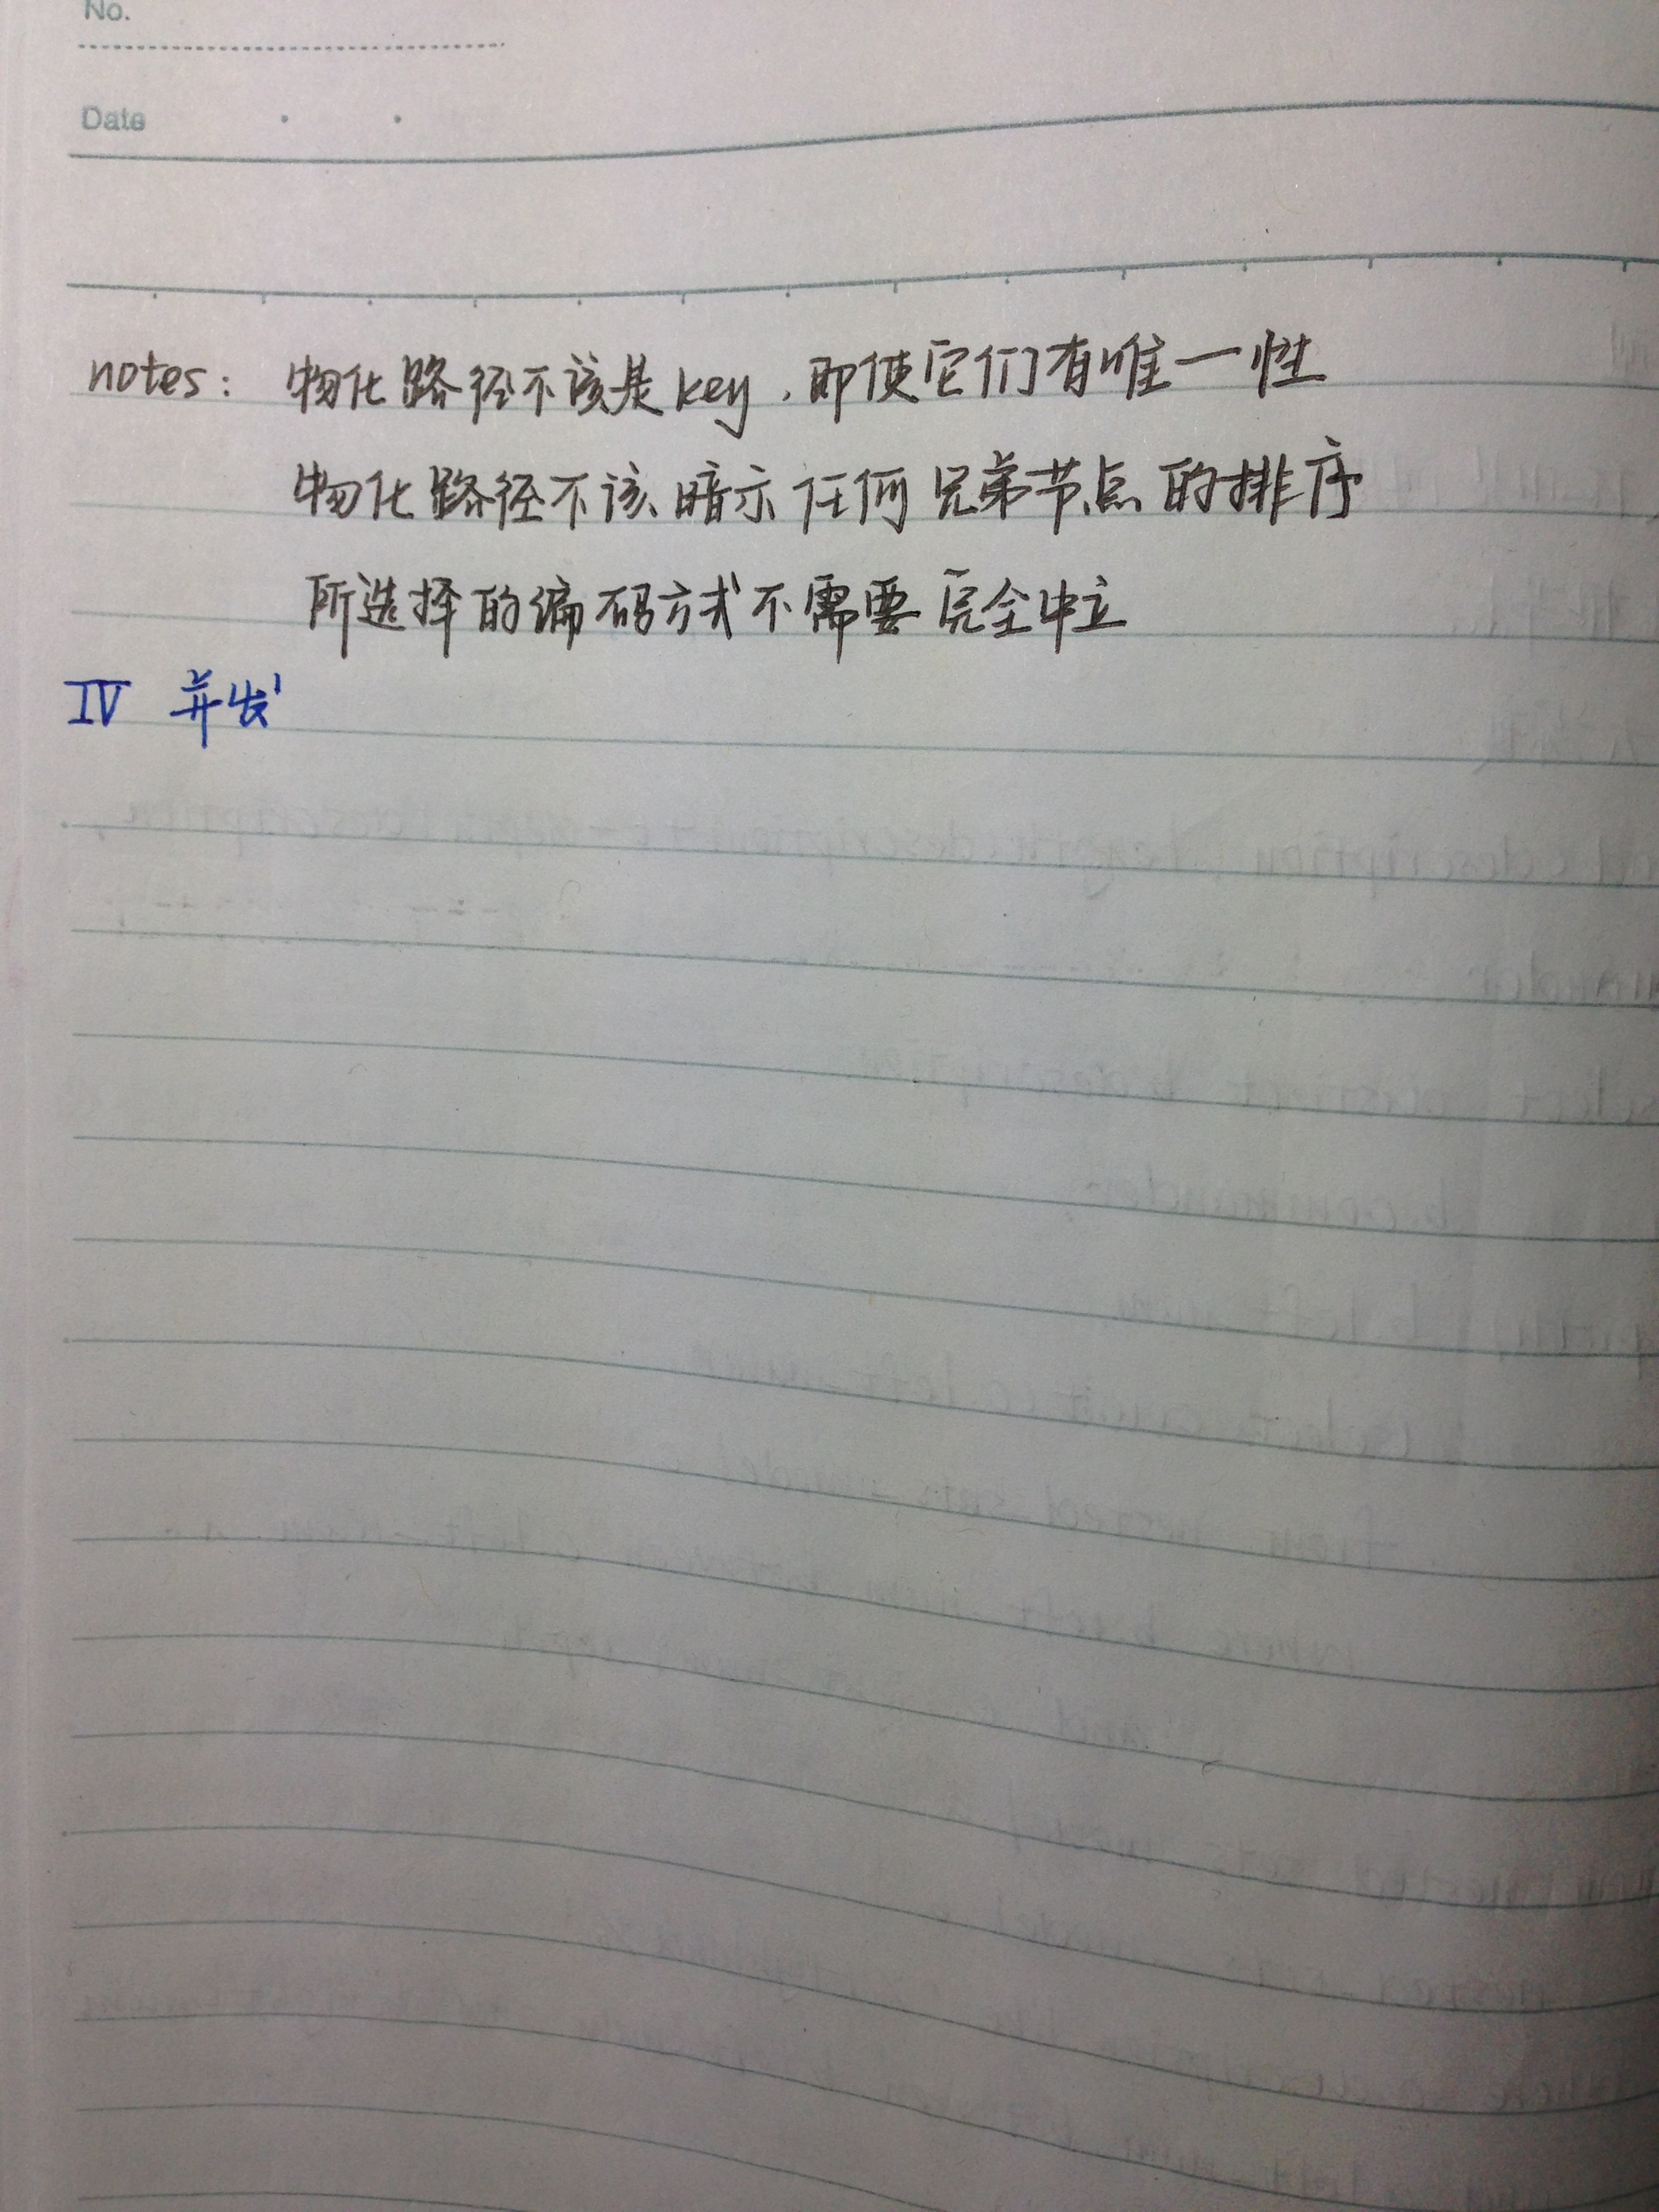 No.
Date
notes: 物化路径不该是key,即使它们有唯一性
物化路径不该暗示任何兄弟节点的排序
所选择的编码方式不需要完全中立
IV 并发